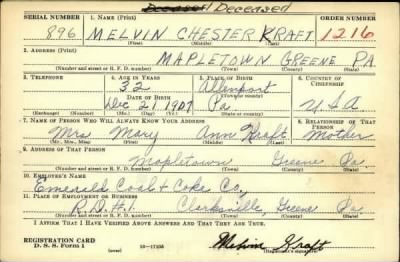 Deceased Deceased
SERIAL NUMBER 1. NAME (Print) ORDER NUMBER
896 MELVIN CHESTER KRAFT 1216
(First) (Middle) (Last)
2. ADDRESS (Print)
MAPLETOWN GREENE PA.
(Number and street or R. F. D. number) (Town) (County) (State)
3. TELEPHONE 4. AGE IN YEARS 5. PLACE OF BIRTH 6. COUNTRY OF CITIZENSHIP
32 Allenport
DATE OF BIRTH (Town or county)
Dec 21 1907 Pa U.S.A
(Exchange) (Number) (Mo.) (Day) (Yr.) (State or country)
7. NAME OF PERSON WHO WILL ALWAYS KNOW YOUR ADDRESS 8. RELATIONSHIP OF THAT PERSON
Mrs Mary Ann Kraft Mother
(Mr., Mrs., Miss) (First) (Middle) (Last)
9. ADDRESS OF THAT PERSON
Mapletown Greene Pa
(Number and street or R. F. D. number) (Town) (County) (State)
10. EMPLOYER'S NAME
Emerald Coal & Coke Co,
11. PLACE OF EMPLOYMENT OR BUSINESS
R.D.#1. Clarksville, Greene Pa
(Number and street or R. F. D. number) (Town) (County) (State)
I AFFIRM THAT I HAVE VERIFIED ABOVE ANSWERS AND THAT THEY ARE TRUE.
REGISTRATION CARD
D. S. S. Form 1 Melvin Kraft